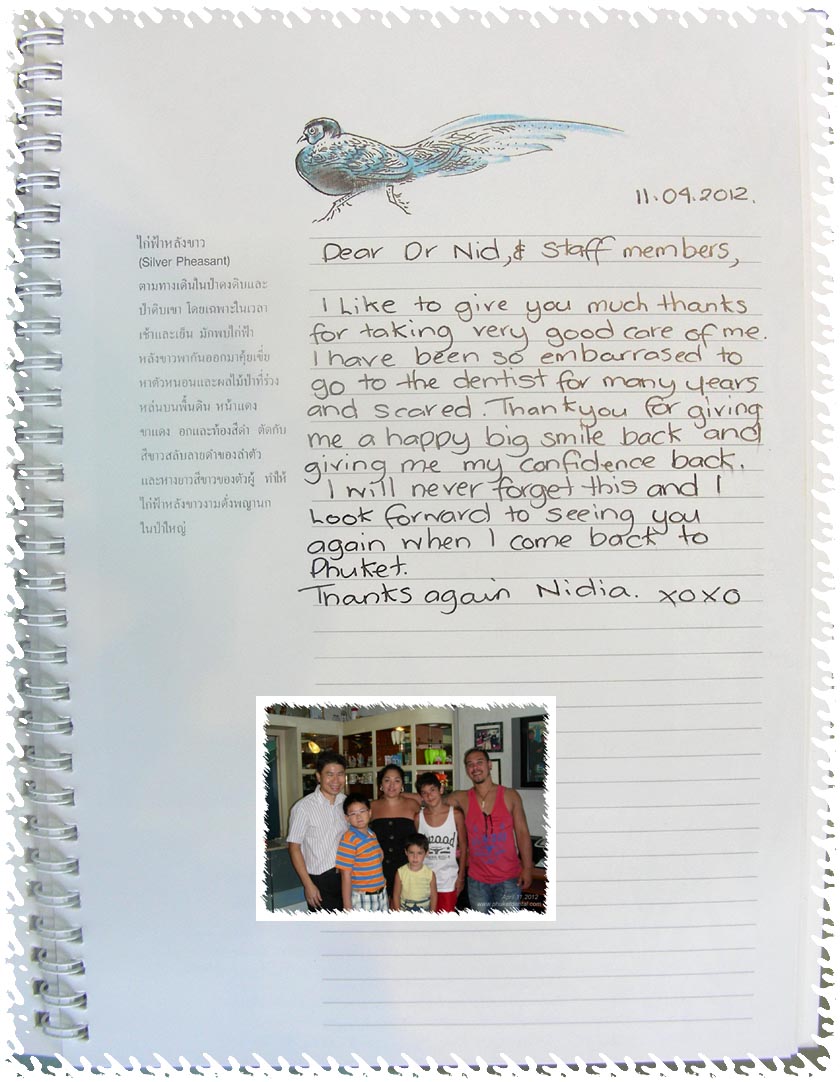 11.04.2012.
ไก่ฟ้าหลังขาว
(Silver Pheasant)
ตามทางเดินในป่าดงดิบและ
ป่าดิบเขา โดยเฉพาะในเวลา
เช้าและเย็น มักพบไก่ฟ้า
หลังขาวพากันออกมาคุ้ยเขี่ย
หาตัวหนอนและผลไม้ป่าที่ร่วง
หล่นบนพื้นดิน หน้าแดง
ขาแดง อกและท้องสีดำ ตัดกับ
สีขาวสลับลายดำของลำตัว
และหางยาวสีขาวของตัวผู้ ทำให้
ไก่ฟ้าหลังขาวงามดั่งพญานก
ในป่าใหญ่
Dear Dr Nid, & Staff members,
I Like to give you much thanks
for taking very good care of me.
I have been so embarrased to
go to the dentist for many years
and scared. Thankyou for giving
me a happy big smile back and
giving me my confidence back.
I will never forget this and I
Look forward to seeing you
again when I come back to
Phuket.
Thanks again Nidia. xoxo
April 11,2012
www.phuketdental.com